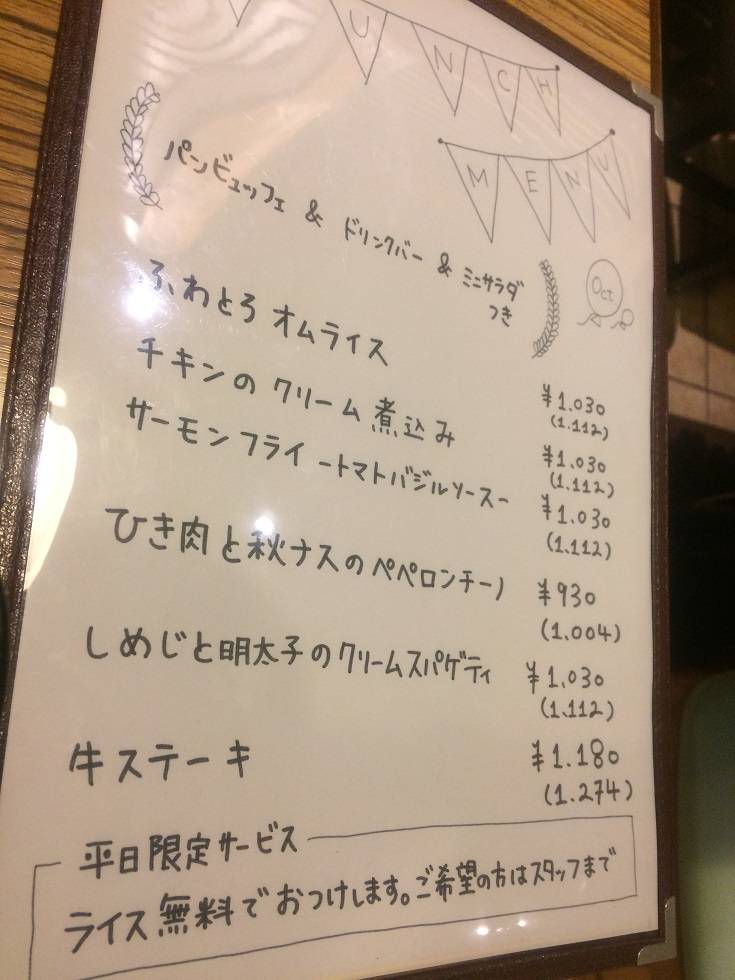 UNCH
MENU
パンビュッフェ & ドリンクバー & ミニサラダ
つき
Oct
ふわとろ オムライス ¥1.030
(1.112)
チキンの クリーム 煮込み ¥1.030
(1.112)
サーモンフライ -トマトバジルソース- ¥1.030
(1.112)
ひき肉と秋ナスのペペロンチーノ ¥930
(1.004)
しめじと明太子のクリームスパゲティ ¥1.030
(1.112)
牛ステーキ ¥1.180
(1.274)
平日限定サービス
ライス無料でおつけします。ご希望の方はスタッフまで